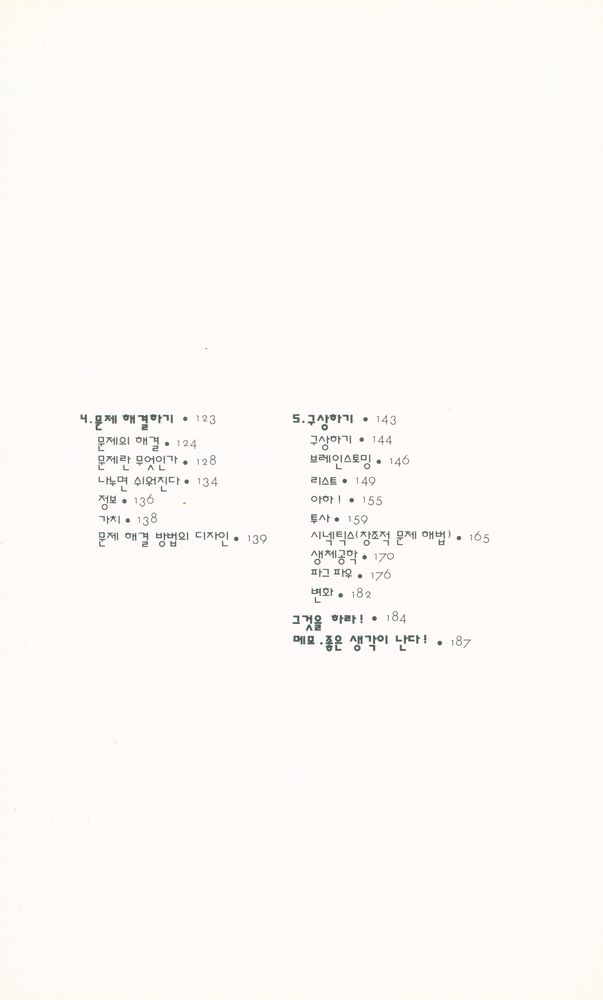 4.문제 해결하기 • 123
문제의 해결 • 124
문제란 무엇인가 • 128
나누면 쉬워진다 • 134
정보 • 136
가치 • 138
문제 해결 방법의 디자인 • 139
5.구상하기 • 143
구상하기 • 144
브레인스토밍 • 146
리스트 • 149
아하! • 155
투사 • 159
시넥틱스(창조적 문제 해법) • 165
생체공학 • 170
파그 파우 • 176
변화 • 182
그것을 하라! • 184
메모.좋은 생각이 난다! • 187